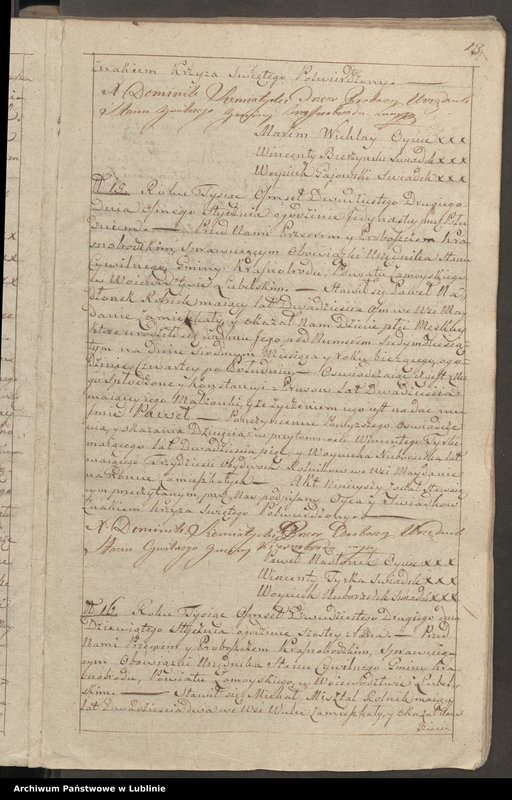 13
Znakiem Krzyża Swiętego Potwierdzony.
X Dominik Siemiatycki Proboszcz Urzędnik
Stanu Cywilnego Gminy
Marcin Wichlay Oyciec XXX
Wincenty Swiadek XXX
Woyciech Swiadek XXX
N 15. Roku Tysiąc Ośmset Dwudziestego Drugiego
Dnia Osmego Stycznia o godzinie Jedynastey przed Połu
dniem. — Przed Nami Przeorem y Proboszczem Kra
snobrodzkim, Sprawuiącym Obowiązki Urzędnika Stanu
Cywilnego, Gminy Krasnobrodu, Powiatu Zamoyskiego,
w Woiewództwie Lubelskim. — Stawił się Paweł Na
dłonek Rolnik maiący lat Dwadzieścia Osm we Wsi May
danie Zamieszkały, y okazał Nam Dziecie płci Męskiey
które urodziło się w domu Jego pod Numerem Siedymdziesią
tym na dniu Siodmym Miesiąca y roku bieżącego, o go
dzinie Czwartey po Południu — Oswiadczaiąc iż iest z Nie
go Spłodzone y Konstancyi z Lat Dwadzieścia
maiącey iego Małżonki, y że życzeniem iego iest nadać mu
Imie Paweł — Po uczynieniu Powyższego Oswiadcze
nia, y okazania Dziecięcia; w przytomności Wincentego Tyrki
maiącego lat Dwadzieścia pięć, y Woyciecha Nieborzatka lat
maiącego Trzydzieści Obydwoch Rolników we Wsi Maydanie
Zamieszkałych — Akt Ninieyszy został Stawaią
cym przeczytanym, przez Nas podpisany Oyca y Swiadków
Znakiem Krzyża Swiętego Potwierdzony. —
X Dominik Siemiatycki Proboszcz Urzędnik
Stanu Cywilnego Gminy Krasnobrodu
Paweł Nadłonek Oyciec XXX
Wincenty Tyrka Swiadek XXX
Woyciech Nieborzatek Swiadek XXX
N 16. Roku Tysiąc Ośmset Dwudziestego Drugiego dnia
Dziewiątego Stycznia o godzinie Szostey z rana. — Przed
Nami Przeorem y Proboszczem Krasnobrodzkim, Sprawuią
cym Obowiązki Urzędnika Stanu Cywilnego Gminy Kra
snobrodu, Powiatu Zamoyskiego, w Woiewództwie Lubel
skim. — Stawił się Michał Misztal Rolnik maiący
lat Dwadzieścia dwa we Wsi Zamieszkały, y okazał Nam
Dziecie
Archiwum Państwowe w Lublinie